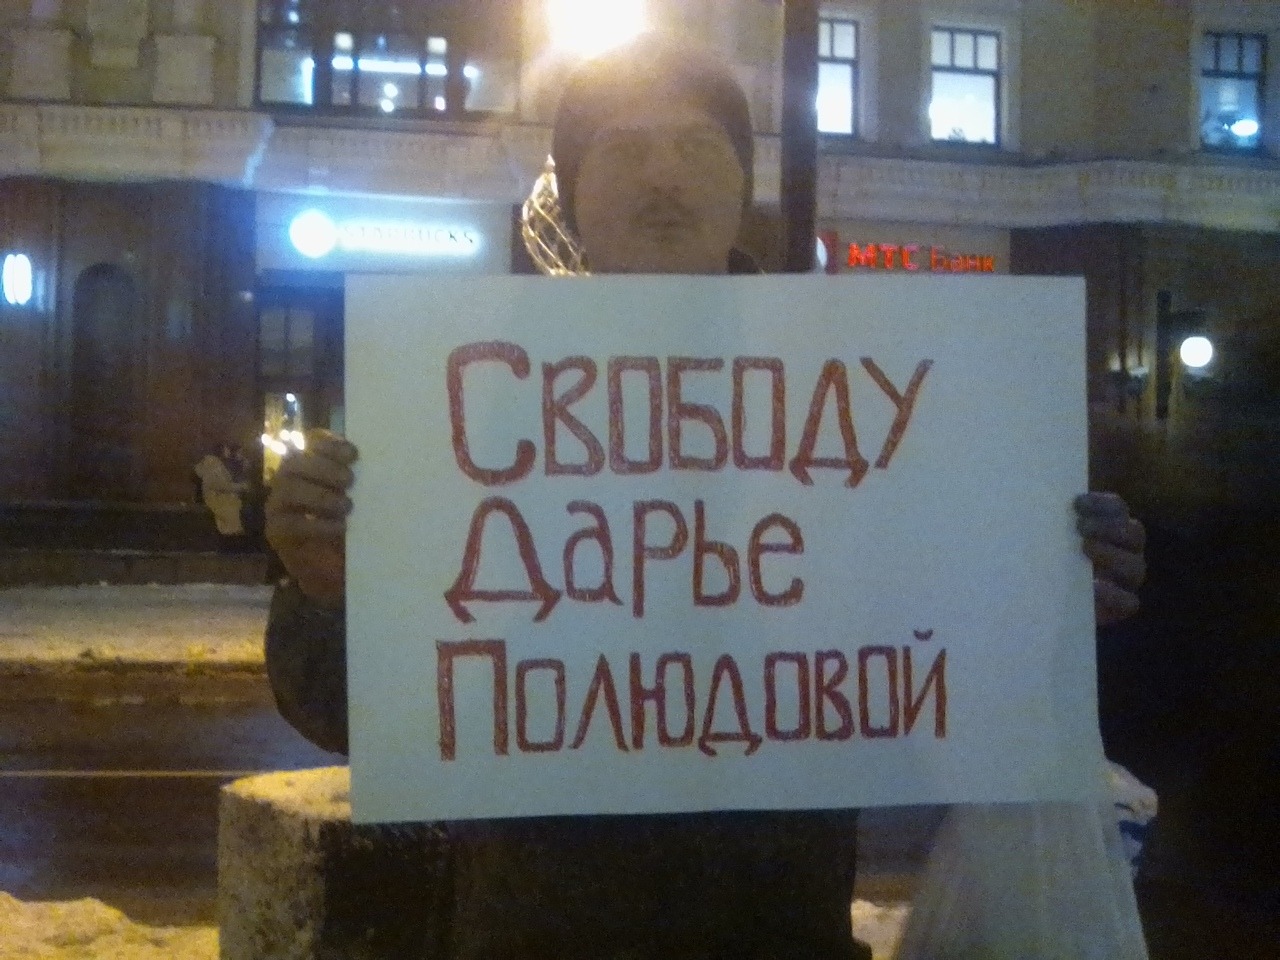 STARBUCKS
МТС Банк
Свободу
Дарье
Полюдовой